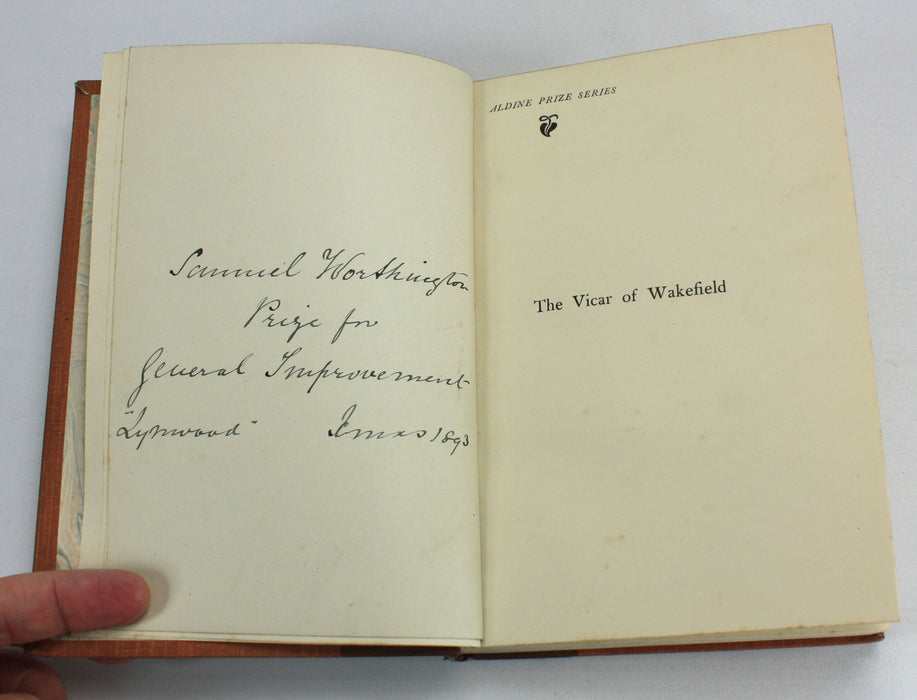 Samuel Worthington
Prize for
General Improvement
"Lynwood" Xmas 1893
ALDINE PRIZE SERIES
The Vicar of Wakefield